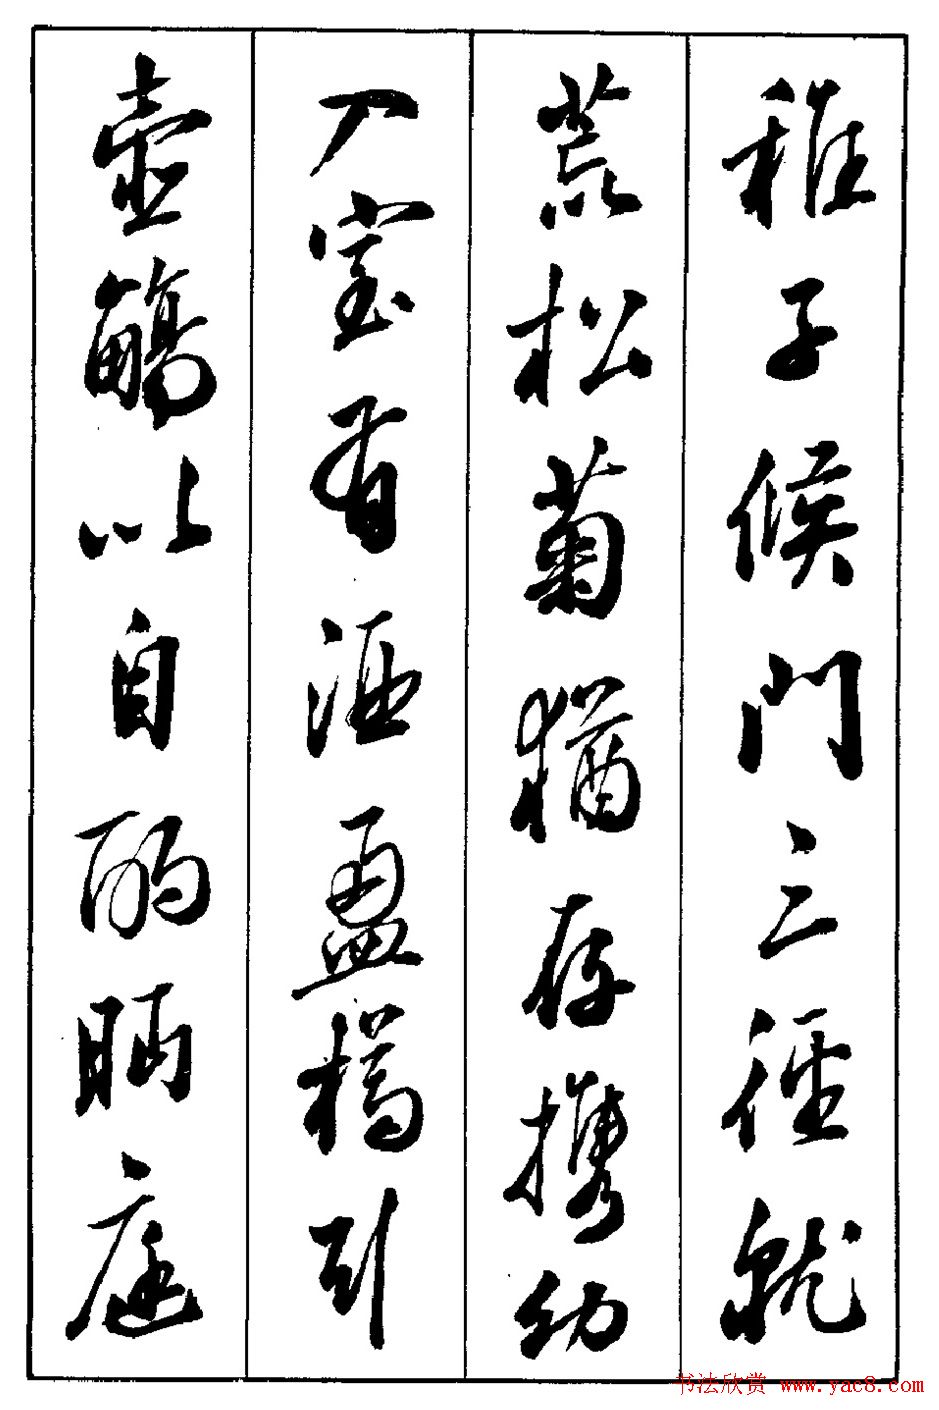 稚子候門三徑就
荒松菊猶存携幼
入室有酒盈樽引
壶觴以自酌眄庭
书法欣赏 www.yac8.com